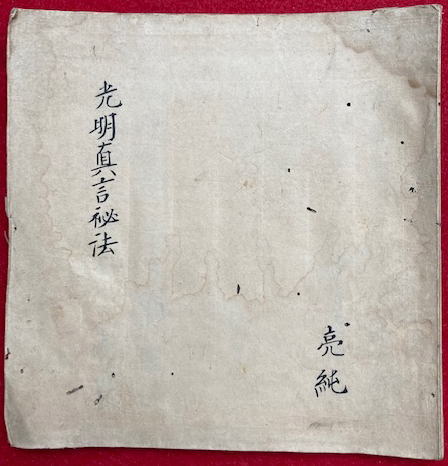 光明真言秘法
亮純